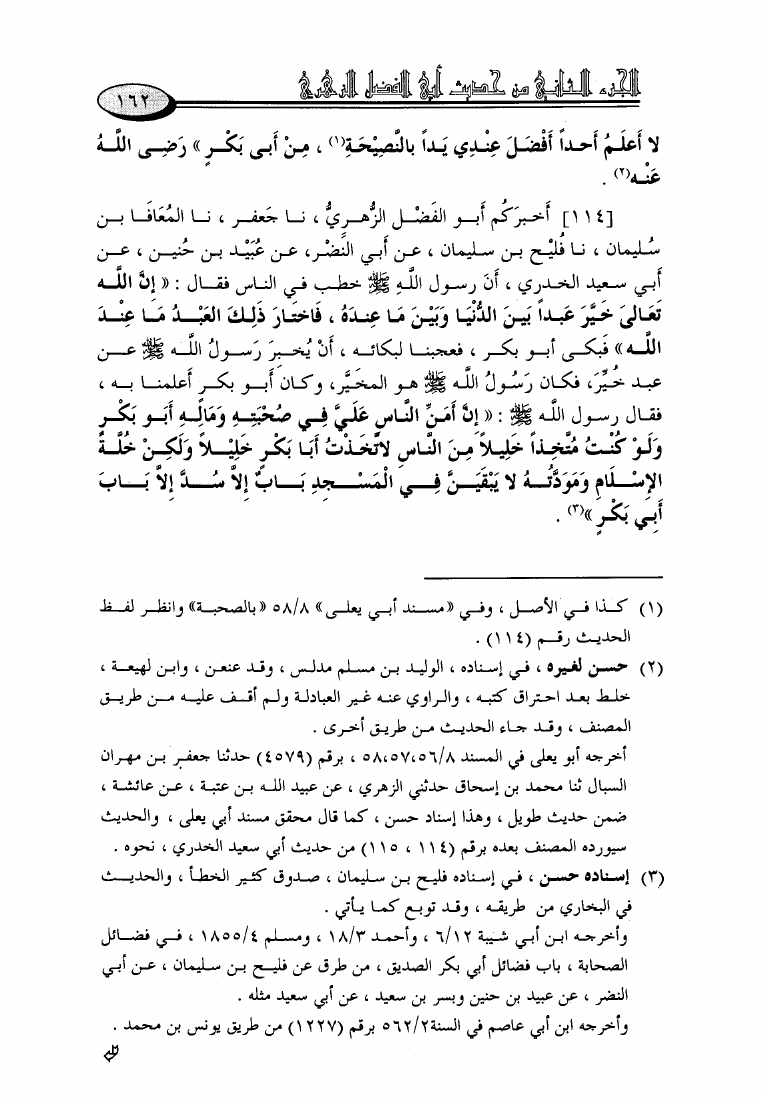 الجزء الثاني من حديث أبي الفضل الزهري
١٦٢
لا أَعلَمُ أَحداً أَفْضَلَ عِنْدِي يَداً بالنَّصِيْحَةِ(١) ، مِنْ أَبى بَكْرٍ » رَضِى اللَّهُ
عَنْه(٢) .
[١١٤] أَخبرَكُم أَبو الفَضْل الزُّهرِيُّ ، نا جَعفر ، نا المُعَافَا بن
سُليمان ، نا فُلَيْح بن سليمان ، عن أَبي النَّضْر، عن عُبَيْد بن حُنين ، عن
أَبي سعيد الخدري ، أَنَ رسول اللَّهِ ﷺ خطب في الناس فقال : « إِنَّ اللَّه
تَعَالىَ خَيَّرَ عَبداً بَينَ الدُّنْيَا وَبَيْنَ مَا عِندَهُ ، فَاختارَ ذَلِكَ العَبْدُ مَا عِنْدَ
اللَّه» فَبكَى أَبو بكر ، فعجبنا لبكائه ، أَنْ يُخبِرَ رَسولُ اللَّه ﷺ عن
عبد خُيِّرَ، فكان رَسُولُ اللَّه ﷺ هو المخيَّر، وكان أَبو بكر أَعلمنا به ،
فقال رسول اللَّه ﷺ : « إِنَّ أَمَنَّ النَّاسِ عَلَيَّ فِي صُحْبَتِهِ وَمَالِهِ أَبَو بَكْرٍ
وَلَوْ كُنْتُ مُتَّخِذاً خَلِيلاً مِنَ النَّاسِ لاتَّخَذْتُ أَبَا بَكْرٍ خَلِيْلاً وَلَكِنْ خُلَّةً
الإِسْلَامِ وَمَوَدَّتُهُ لا يَبْقَيَنَّ فِي الْمَسْجِدِ بَابٌ إِلاَّ سُدَّ إِلاَّ بَابَ
أَبِي بَكْرٍ »(٣) .
(١) كذا في الأصل ، وفي «مسند أبي يعلى» ٥٨/٨ «بالصحبة» وانظر لفظ
الحديث رقم (١١٤) .
(٢) حسن لغيره ، في إسناده ، الوليد بن مسلم مدلس ، وقد عنعن ، وابن لهيعة ،
خلط بعد احتراق كتبه ، والراوي عنه غير العبادلة ولم أقف عليه من طريق
المصنف ، وقد جاء الحديث من طريق أخرى .
أخرجه أبو يعلى في المسند ٥٦/٨،٥٧،٥٨ ، برقم (٤٥٧٩) حدثنا جعفر بن مهران
السبال ثنا محمد بن إسحاق حدثني الزهري ، عن عبيد الله بن عتبة ، عن عائشة ،
ضمن حديث طويل ، وهذا إسناد حسن ، كما قال محقق مسند أبي يعلى ، والحديث
سيورده المصنف بعده برقم (١١٤ ، ١١٥) من حديث أبي سعيد الخدري ، نحوه .
(٣) إسناده حسن ، في إسناده فليح بن سليمان ، صدوق كثير الخطأ ، والحديث
في البخاري من طريقه ، وقد توبع كما يأتي .
وأخرجه ابن أبي شيبة ٦/١٢ ، وأحمد ١٨/٣ ، ومسلم ١٨٥٥/٤ ، في فضائل
الصحابة ، باب فضائل أبي بكر الصديق ، من طرق عن فليح بن سليمان ، عن أبي
النضر ، عن عبيد بن حنين وبسر بن سعيد ، عن أبي سعيد مثله .
وأخرجه ابن أبي عاصم في السنة٥٦٢/٢ برقم (١٢٢٧) من طريق يونس بن محمد .